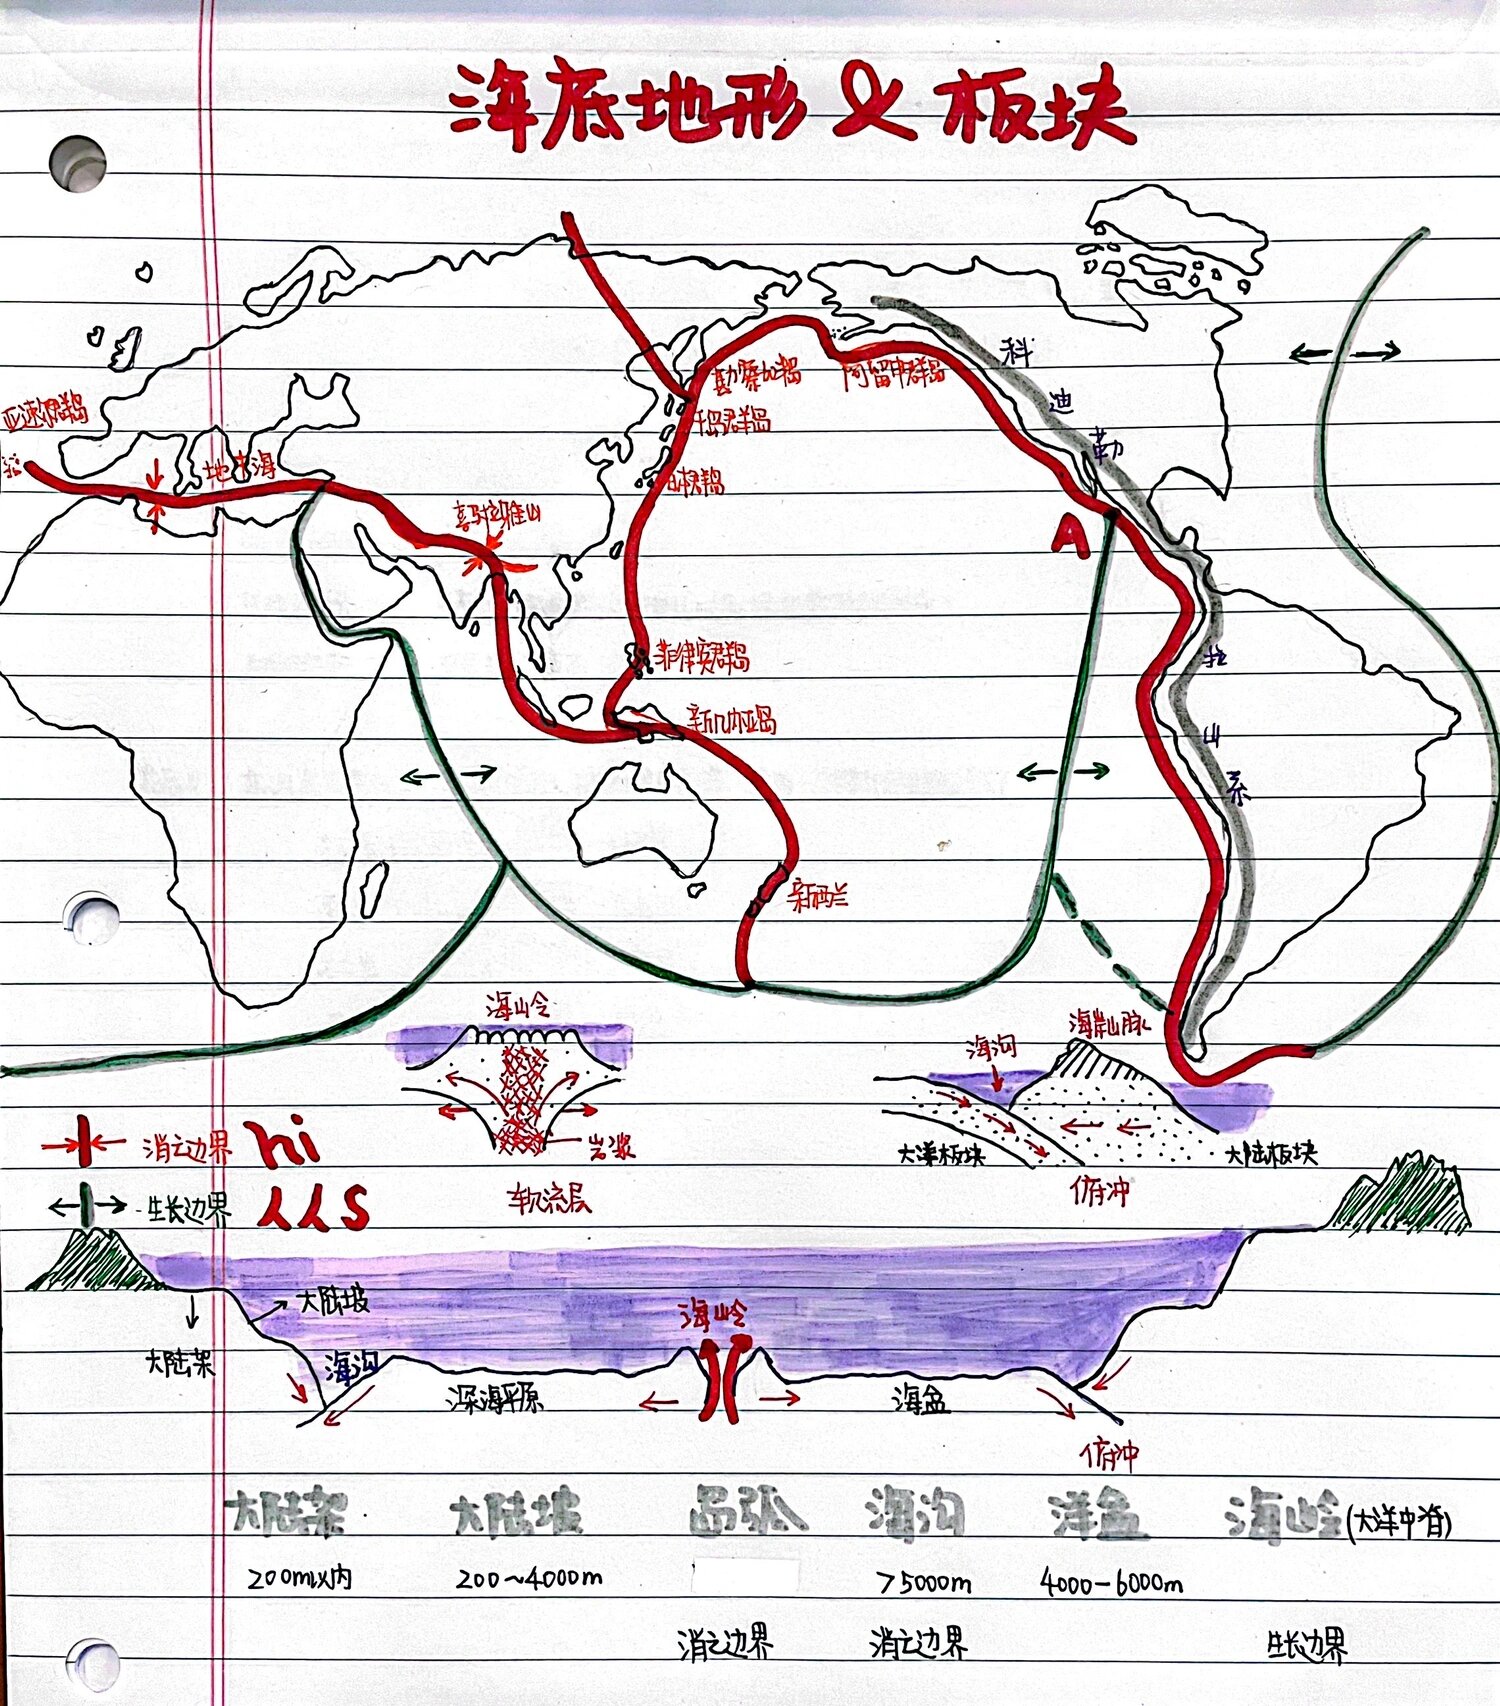 海底地形 & 板块
科
迪
勒
拉
山
系
勘察加半岛
阿留申群岛
千岛群岛
日本群岛
亚速尔群岛
地中海
喜马拉雅山
A
菲律宾群岛
新几内亚岛
新西兰
海岭
海岸山脉
海沟
岩浆
大洋板块
大陆板块
软流层
俯冲
消亡边界
生长边界
大陆坡
海岭
大陆架
海沟
深海平原
海盆
俯冲
大陆架 大陆坡 岛弧 海沟 洋盆 海岭(大洋中脊)
200m以内 200~4000m >5000m 4000-6000m
消亡边界 消亡边界 生长边界